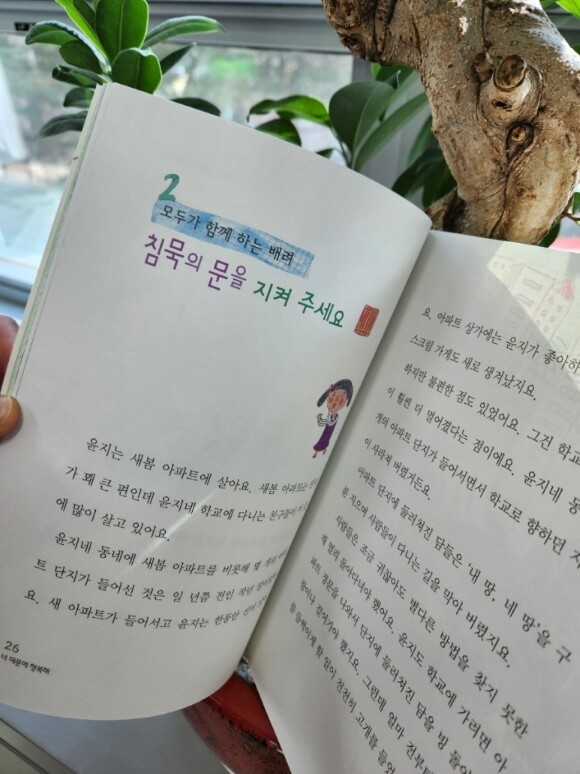 2
모두가 함께 하는 배려
침묵의 문을 지켜 주세요
윤지는 새봄 아파트에 살아요. 새봄 아파트는
가 꽤 큰 편인데 윤지네 학교에 다니는 친구들이
에 많이 살고 있어요.
윤지네 동네에 새봄 아파트를 비롯해 몇
트 단지가 들어선 것은 일 년쯤 전인 작년
요. 새 아파트가 들어서고 윤지는 한동안 신이
26
너 때문에 행복해
요. 아파트 상가에는 윤지가 좋아하
스크림 가게도 새로 생겨났지요.
하지만 불편한 점도 있었어요. 그건 학교
이 훨씬 더 멀어졌다는 점이에요. 윤지네 동
개의 아파트 단지가 들어서면서 학교로 향하던 지
이 사라져 버렸거든요.
아파트 단지에 둘러쳐진 담들은 '내 땅, 네 땅'을 구
분 지으며 사람들이 다니는 길을 막아 버렸지요.
사람들은 조금 귀찮아도 별다른 방법을 찾지 못한
채 멀리 돌아다녀야 했어요. 윤지도 학교에 가려면 아
파트 정문을 나와서 단지에 둘러쳐진 담을 빙 돌아
걸어가야 했지요. 그런데 엄마
할 없이 천천히 고개를 들었